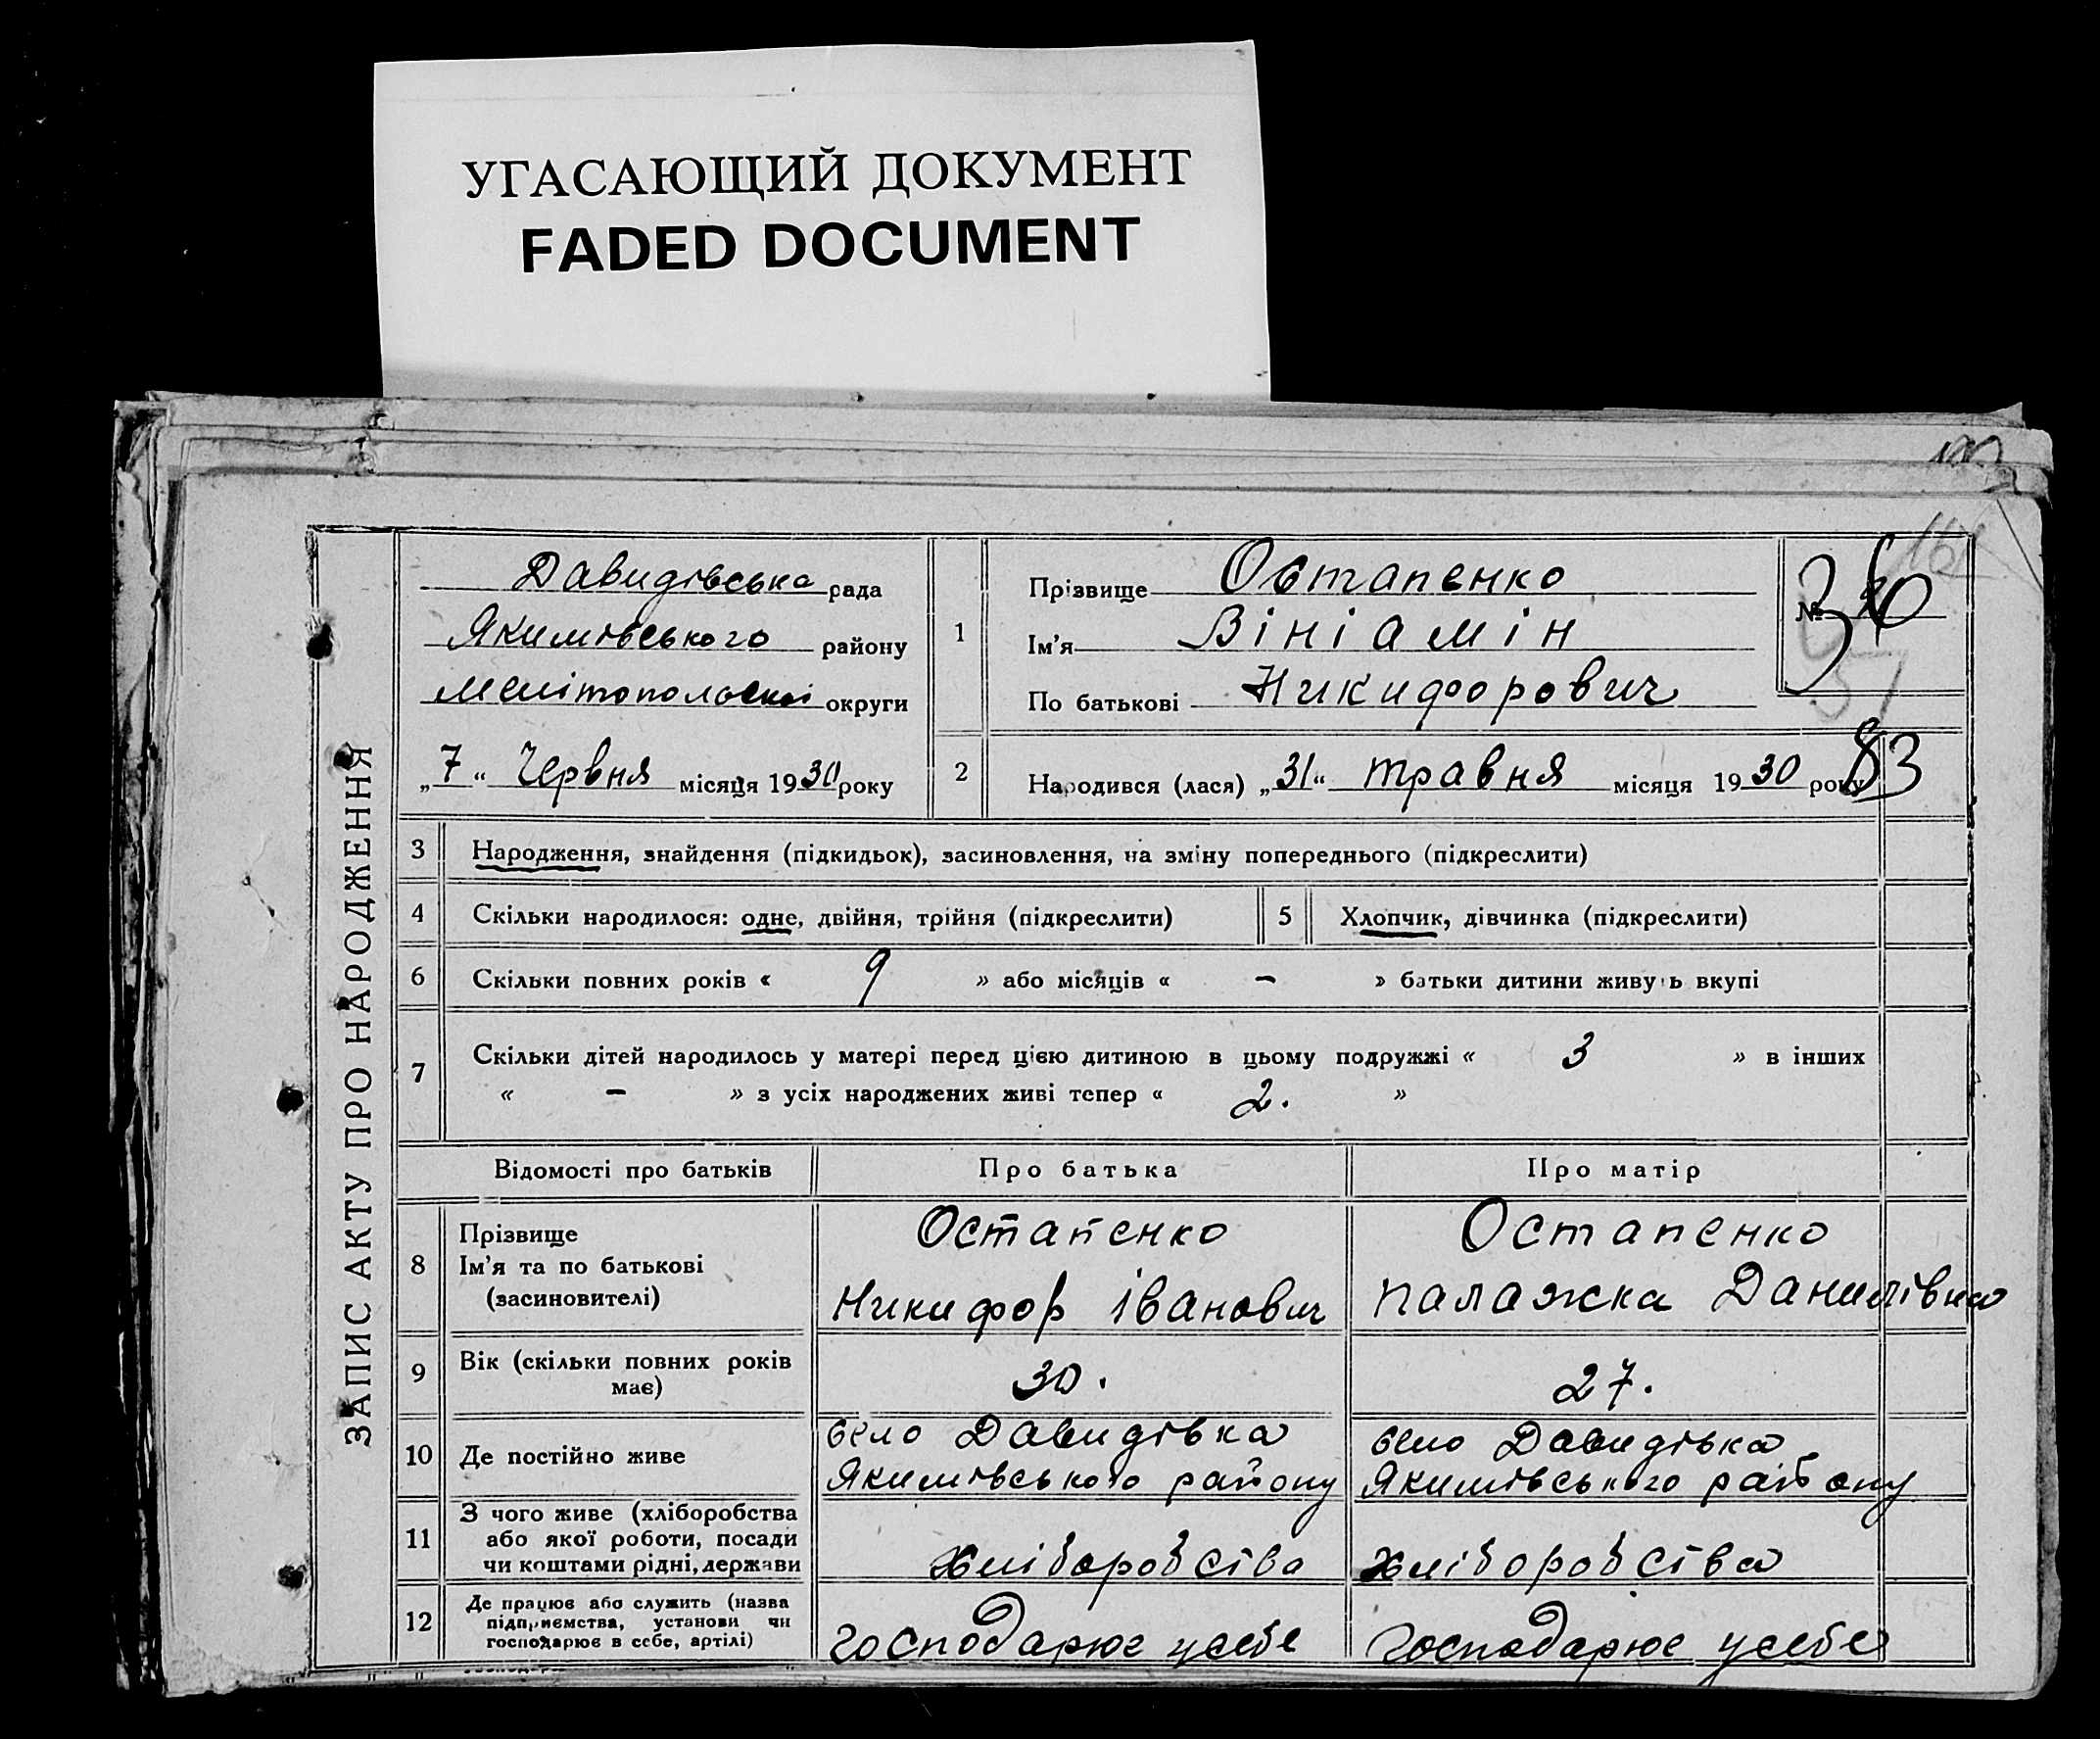 УГАСАЮЩИЙ ДОКУМЕНТ
FADED DOCUMENT
ЗАПИС АКТУ ПРО НАРОДЖЕННЯ
Давидівська рада
Якимівського району
Мелітопольскої округи
„7“ Червня місяця 1930 року
1
Прізвище Остапенко
Ім'я Вініамін
По батькові Никифорович
№
83
2
Народився (лася) „31“ травня місяця 1930 року
3 Народження, знайдення (підкидьок), засиновлення, на зміну попереднього (підкреслити)
4 Скільки народилося: одне, двійня, трійня (підкреслити)
5 Хлопчик, дівчинка (підкреслити)
6 Скільки повних років « 9 » або місяців « – » батьки дитини живуть вкупі
7 Скільки дітей народилось у матері перед цією дитиною в цьому подружжі « 3 » в інших
« – » з усіх народжених живі тепер « 2. »
Відомості про батьків
Про батька
Про матір
8
Прізвище
Ім'я та по батькові
(засиновителі)
Остапенко
Никифор Іванович
Остапенко
Палажка Данилівна
9
Вік (скільки повних років
має)
30.
27.
10 Де постійно живе
село Давидівка
Якимівського району
село Давидівка
Якимівського району
11
З чого живе (хліборобства
або якої роботи, посади
чи коштами рідні, держави
хліборобства
хліборобства
12
Де працює або служить (назва
підприємства, установи чи
господарює в себе, артілі)
господарює усебе
господарює усебе